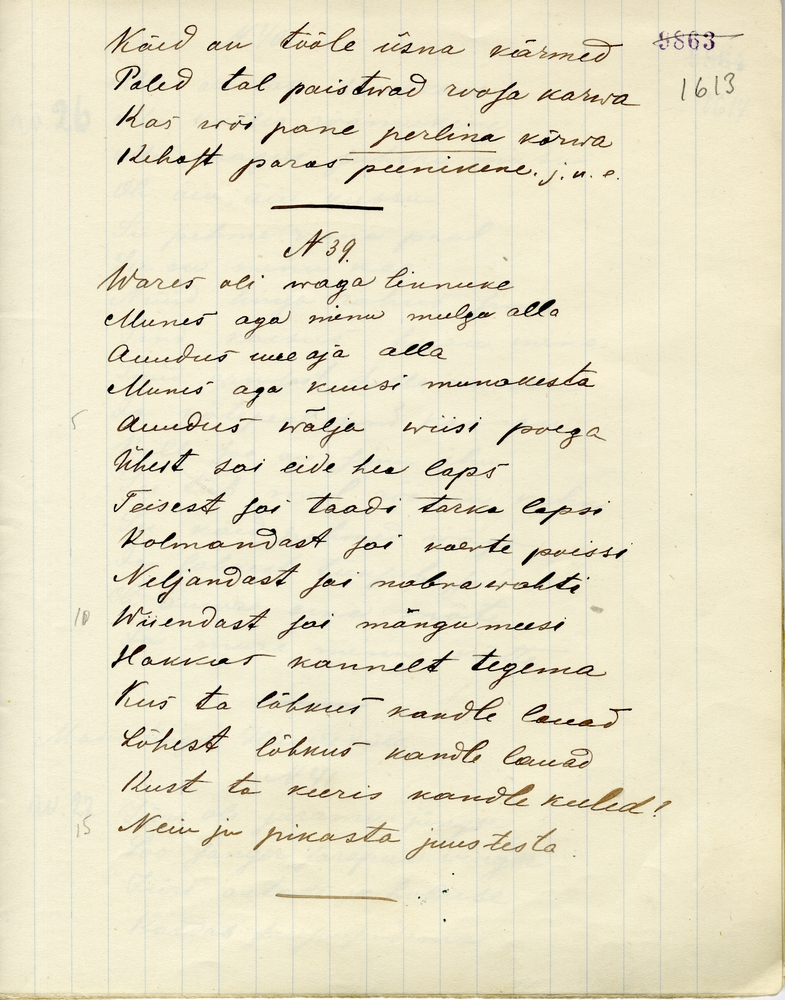 Käed on tööle üsna kärmed
9863
Paled tal paistwad roosa karwa
1613
Kas wõi pane perlina kõrwa
Kehast paras peenikene. j. n. e.
N 39.
Wares oli waga linnuke
Munes aga minu mulga alla
Audus wee aja alla
Munes aga kuusi munakesta
5
Audus wälja wiisi poega
Ühest sai eide hea laps
Teisest sai taadi tarka lapsi
Kolmandast sai koerte poissi
Neljandast sai nabra wahti
10
Wiiendast sai mängu meesi
Hakkas kannelt tegema
Kus ta lõhkus kandle lauad
Lõhest lõhkus kandle lauad
Kust ta keeris kandle keeled?
15
Neiu ju pikasta juustesta